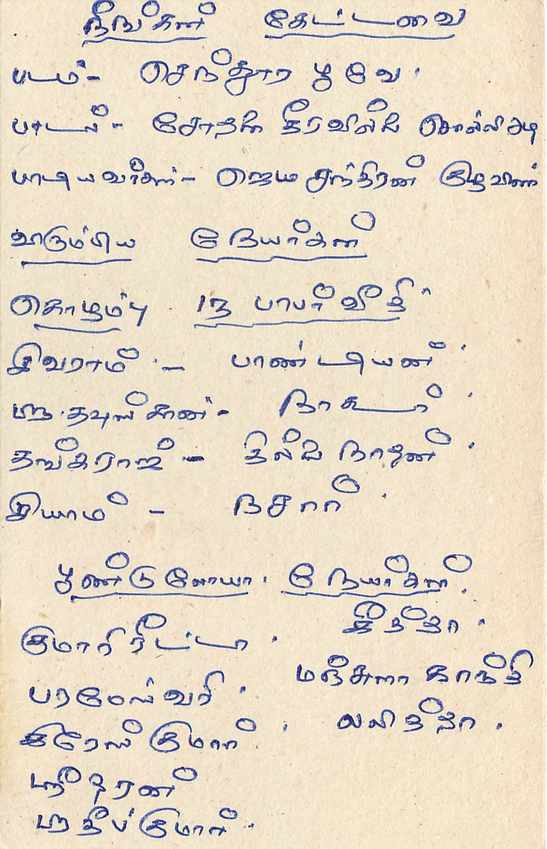 நீங்கள் கேட்டவை
படம்- செந்தூர பூவே.
பாடல்- சோதனை தீரவில்லை சொல்லிஅழ
பாடியவர்கள்- ஜெயசந்திரன்
விரும்பிய நேயர்கள்
கொழும்பு 13 பாபர்வீதி
சிவராம் - பாண்டியன்.
தவுஸ்கான் - நாகூர்.
தங்கராஜ் - தில்லைநாதன்.
சியாம் - நசார்.
பூண்டுலோயா. நேயர்கள்.
குமாரி ரீட்டா. கீத்தா.
பரமேஸ்வரி. மஞ்சுளா காந்தி
சுரேஸ் குமார். லலித்தா.
ஸ்ரீதரன்
பிரதீப்குமார்.